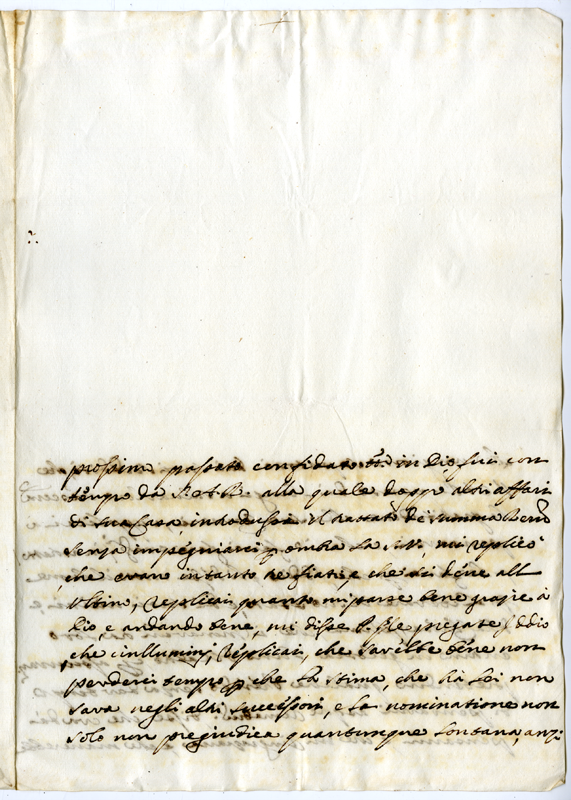 prossimo passato confidato in Dio fui con
tempo da alla quale doppo altri affari
di sua Casa, indodussi il trattato di summa
senza impegniarci ombra la mi replicò
che erano in tanto che lei déve all
Ultimo, replicai quanto mi parse bene grazie à
Dio, e andando bene, mi disse pregate Iddio
che c'inllumini, Réplicai, che sarébbe béne non
perderci tempo che la stima, che ha lei non
sara negli altri Successori, e la nominatione non
solo non pregiudica quantunque lontana, anzi